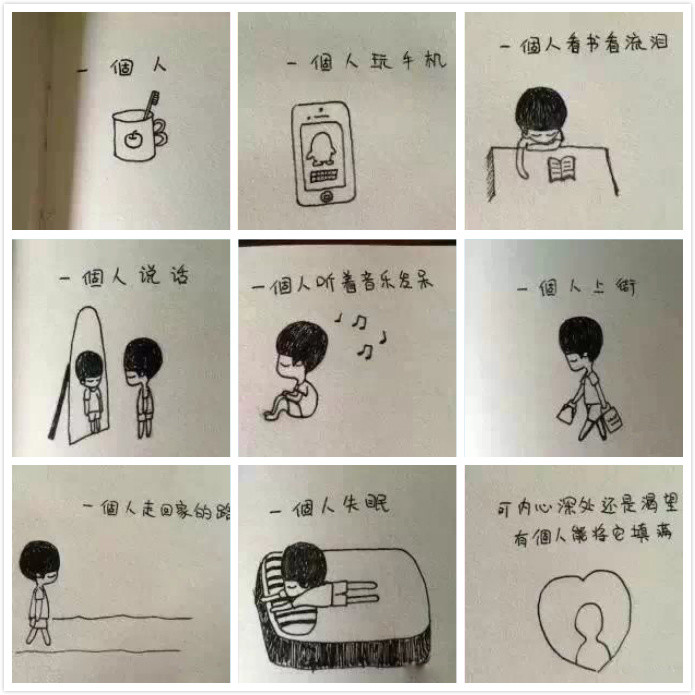 一個人
一個人玩手机
一個人看书看流泪
一個人说话
一個人听着音乐发呆
一個人上街
一個人走回家的路
一個人失眠
可内心深处还是渴望
有個人能将它填满